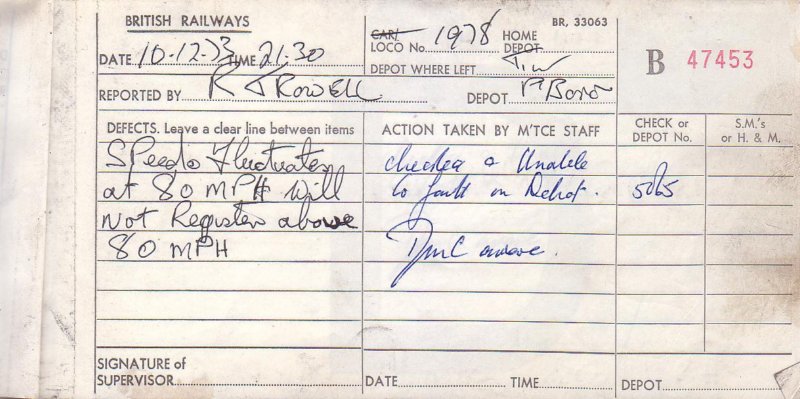 BRITISH RAILWAYS
DATE 10-12-73 TIME 21.30
CAR/ LOCO No. 1978 HOME DEPOT
BR, 33063
DEPOT WHERE LEFT
B 47453
REPORTED BY R J ROWELL DEPOT P'Boro
DEFECTS. Leave a clear line between items
ACTION TAKEN BY M'TCE STAFF
CHECK or DEPOT No.
S.M.'s or H. & M.
Speedo Fluctuates
at 80 MPH Will
Not Register above
80 MPH
checked & Unable
to fault on Depot.
5065
DMC aware.
SIGNATURE of
SUPERVISOR
DATE TIME DEPOT